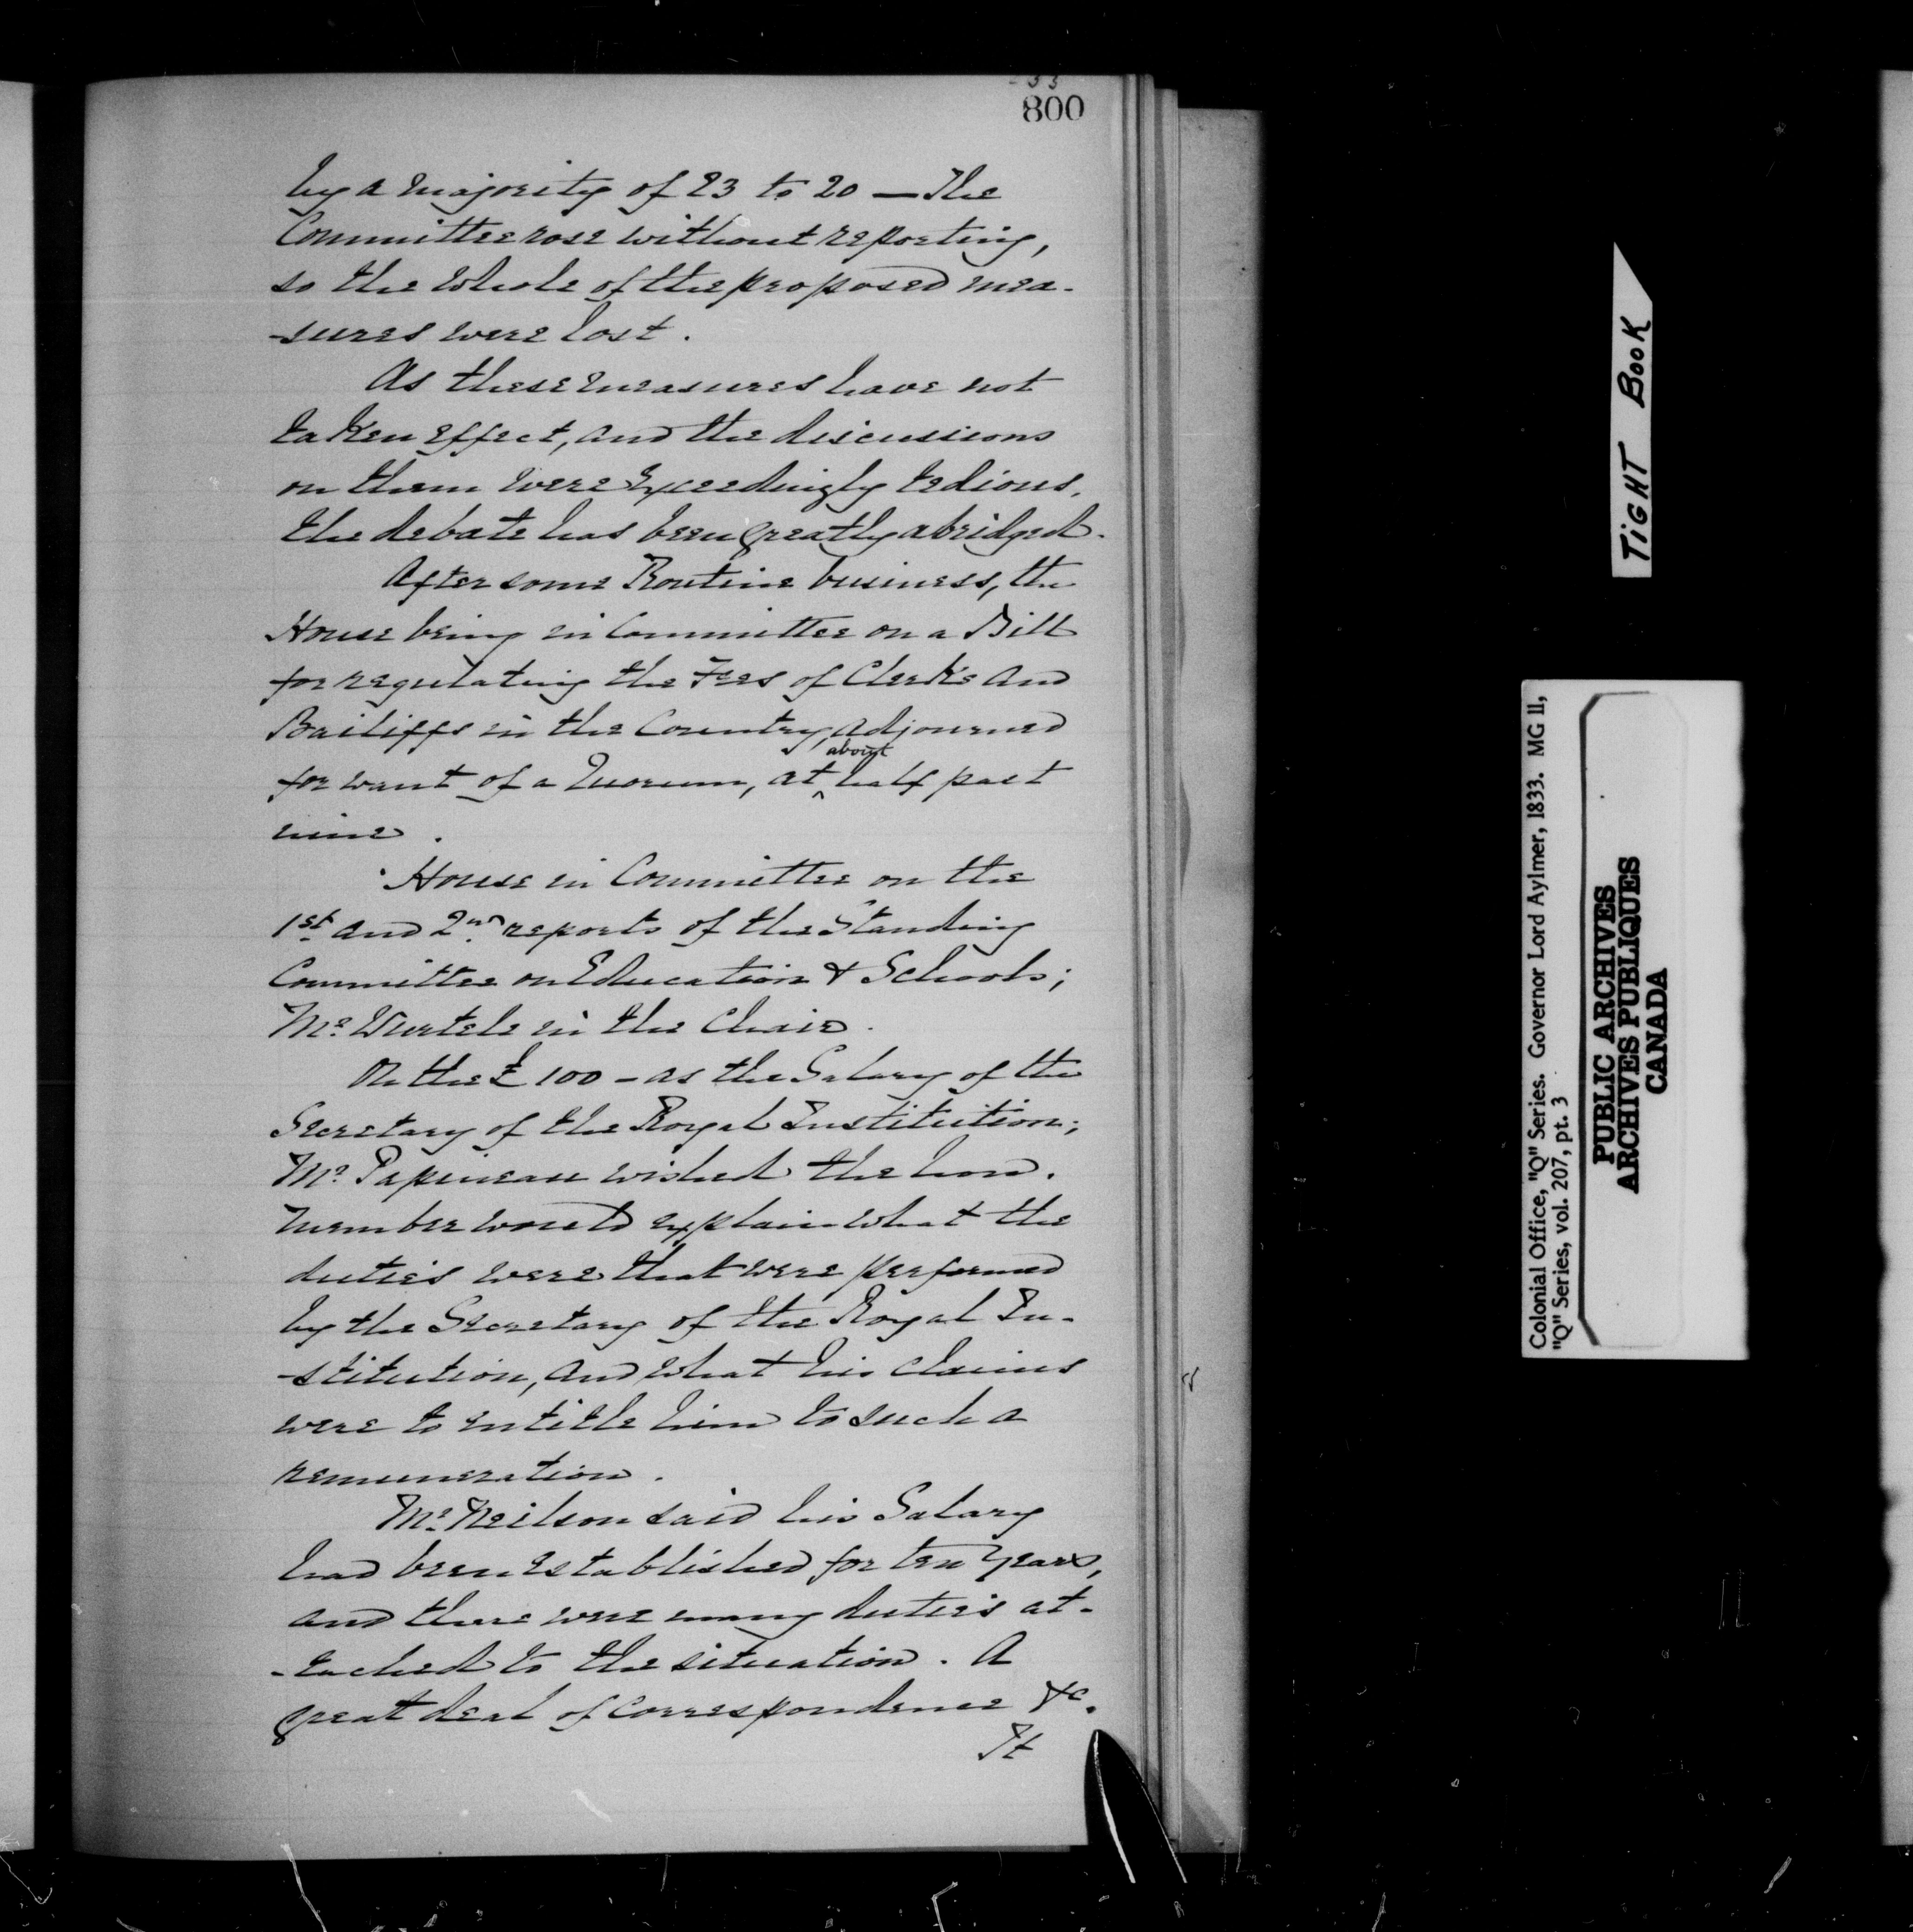 33
800
by a majority of 23 to 20 — The
Committee rose without reporting,
so the whole of the proposed mea-
-sures were lost.
As these measures have not
taken effect, and the discussions
on them were exceedingly tedious,
the debate has been greatly abridged.
After some Routine business, the
House being in Committee on a Bill
for regulating the Fees of Clerks and
Bailiffs in the Country, adjourned
for want of a Quorum, at ^about half past
nine.
House in Committee on the
1st and 2nd reports of the Standing
Committee on Education & Schools;
Mr Wurtele in the Chair.
On the £100 - as the Salary of the
Secretary of the Royal Institution;
Mr Papineau wished the hon.
member would explain what the
duties were that were performed
by the Secretary of the Royal In-
-stitution, and what his claims
were to entitle him to such a
remuneration.
Mr Neilson said his Salary
had been established for ten years,
and there were many duties at-
-tached to the situation. A
great deal of correspondence &c.
It
TIGHT BOOK
Colonial Office, "Q" Series. Governor Lord Aylmer, 1833. MG 11,
"Q" Series, vol. 207, pt. 3
PUBLIC ARCHIVES
ARCHIVES PUBLIQUES
CANADA